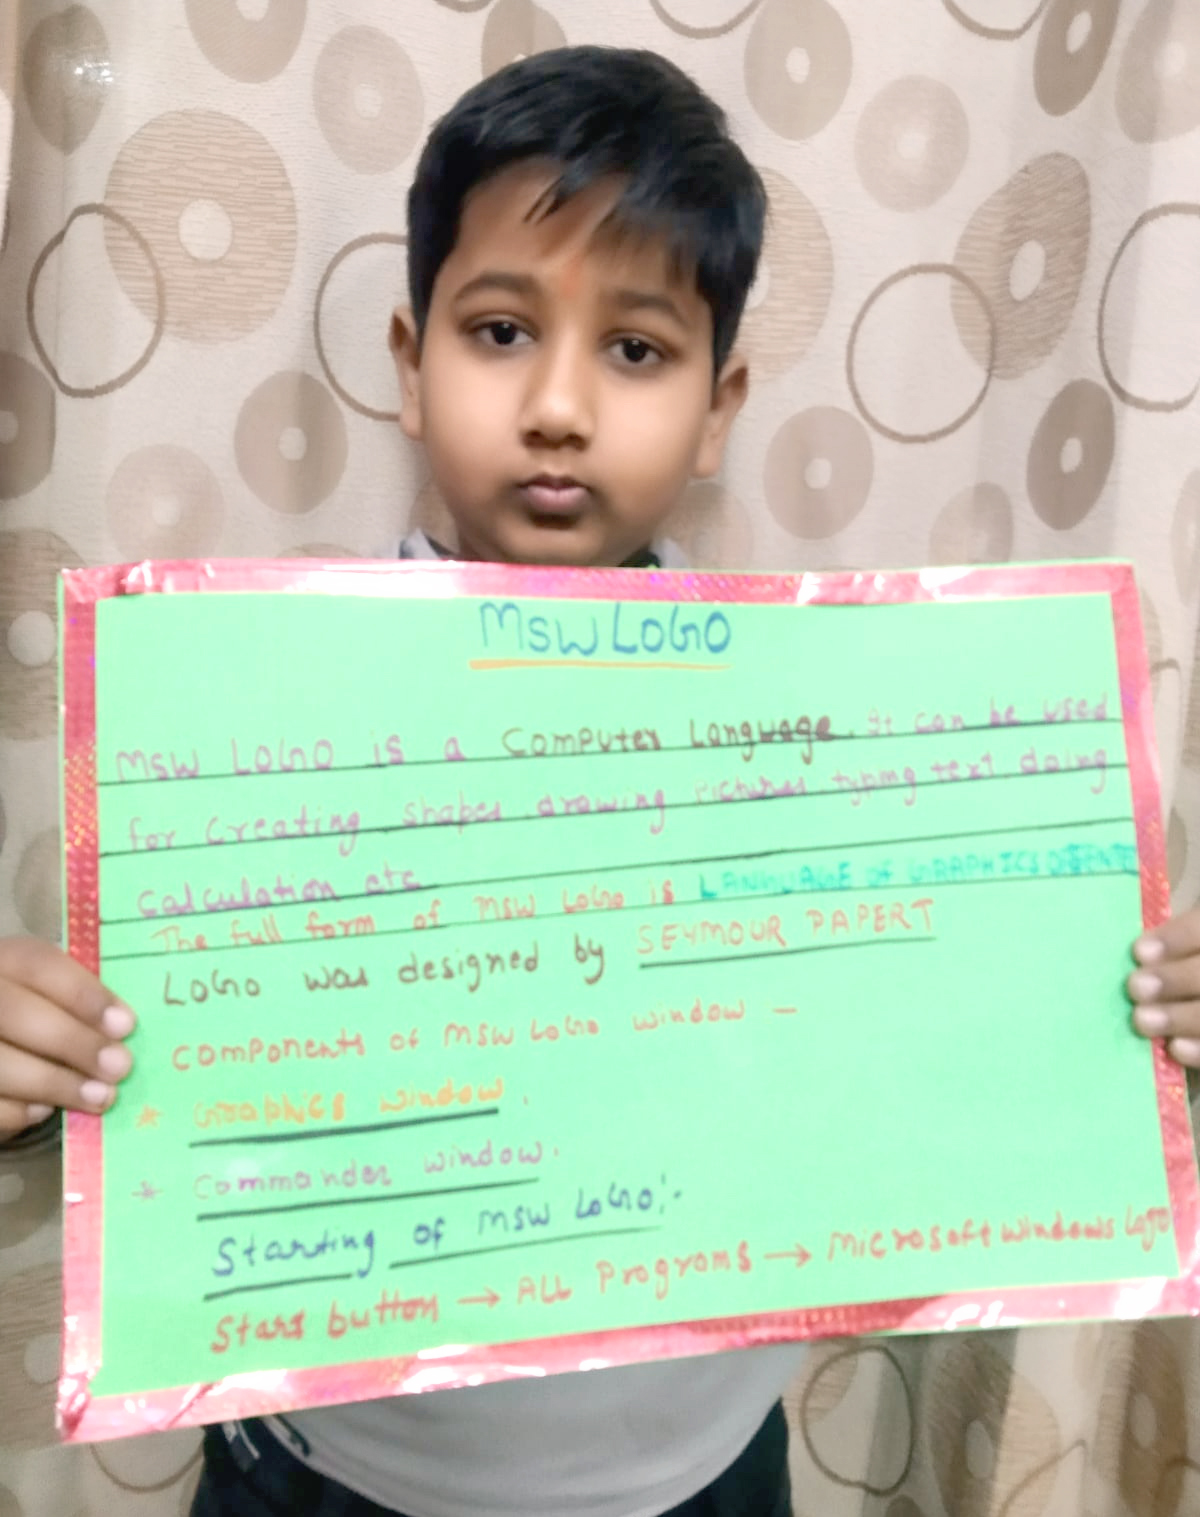 MSW LOGO
MSW LOGO is a Computer Language. It can be used
for Creating shapes drawing Pictures typing text doing
Calculation etc
The full form of MSW LOGO is LANGUAGE OF GRAPHICS
LOGO was designed by SEYMOUR PAPERT
Components of MSW LOGO window —
* Graphics window.
* Commander window.
Starting of MSW LOGO:-
Start button → ALL Programs → Microsoft windows Logo